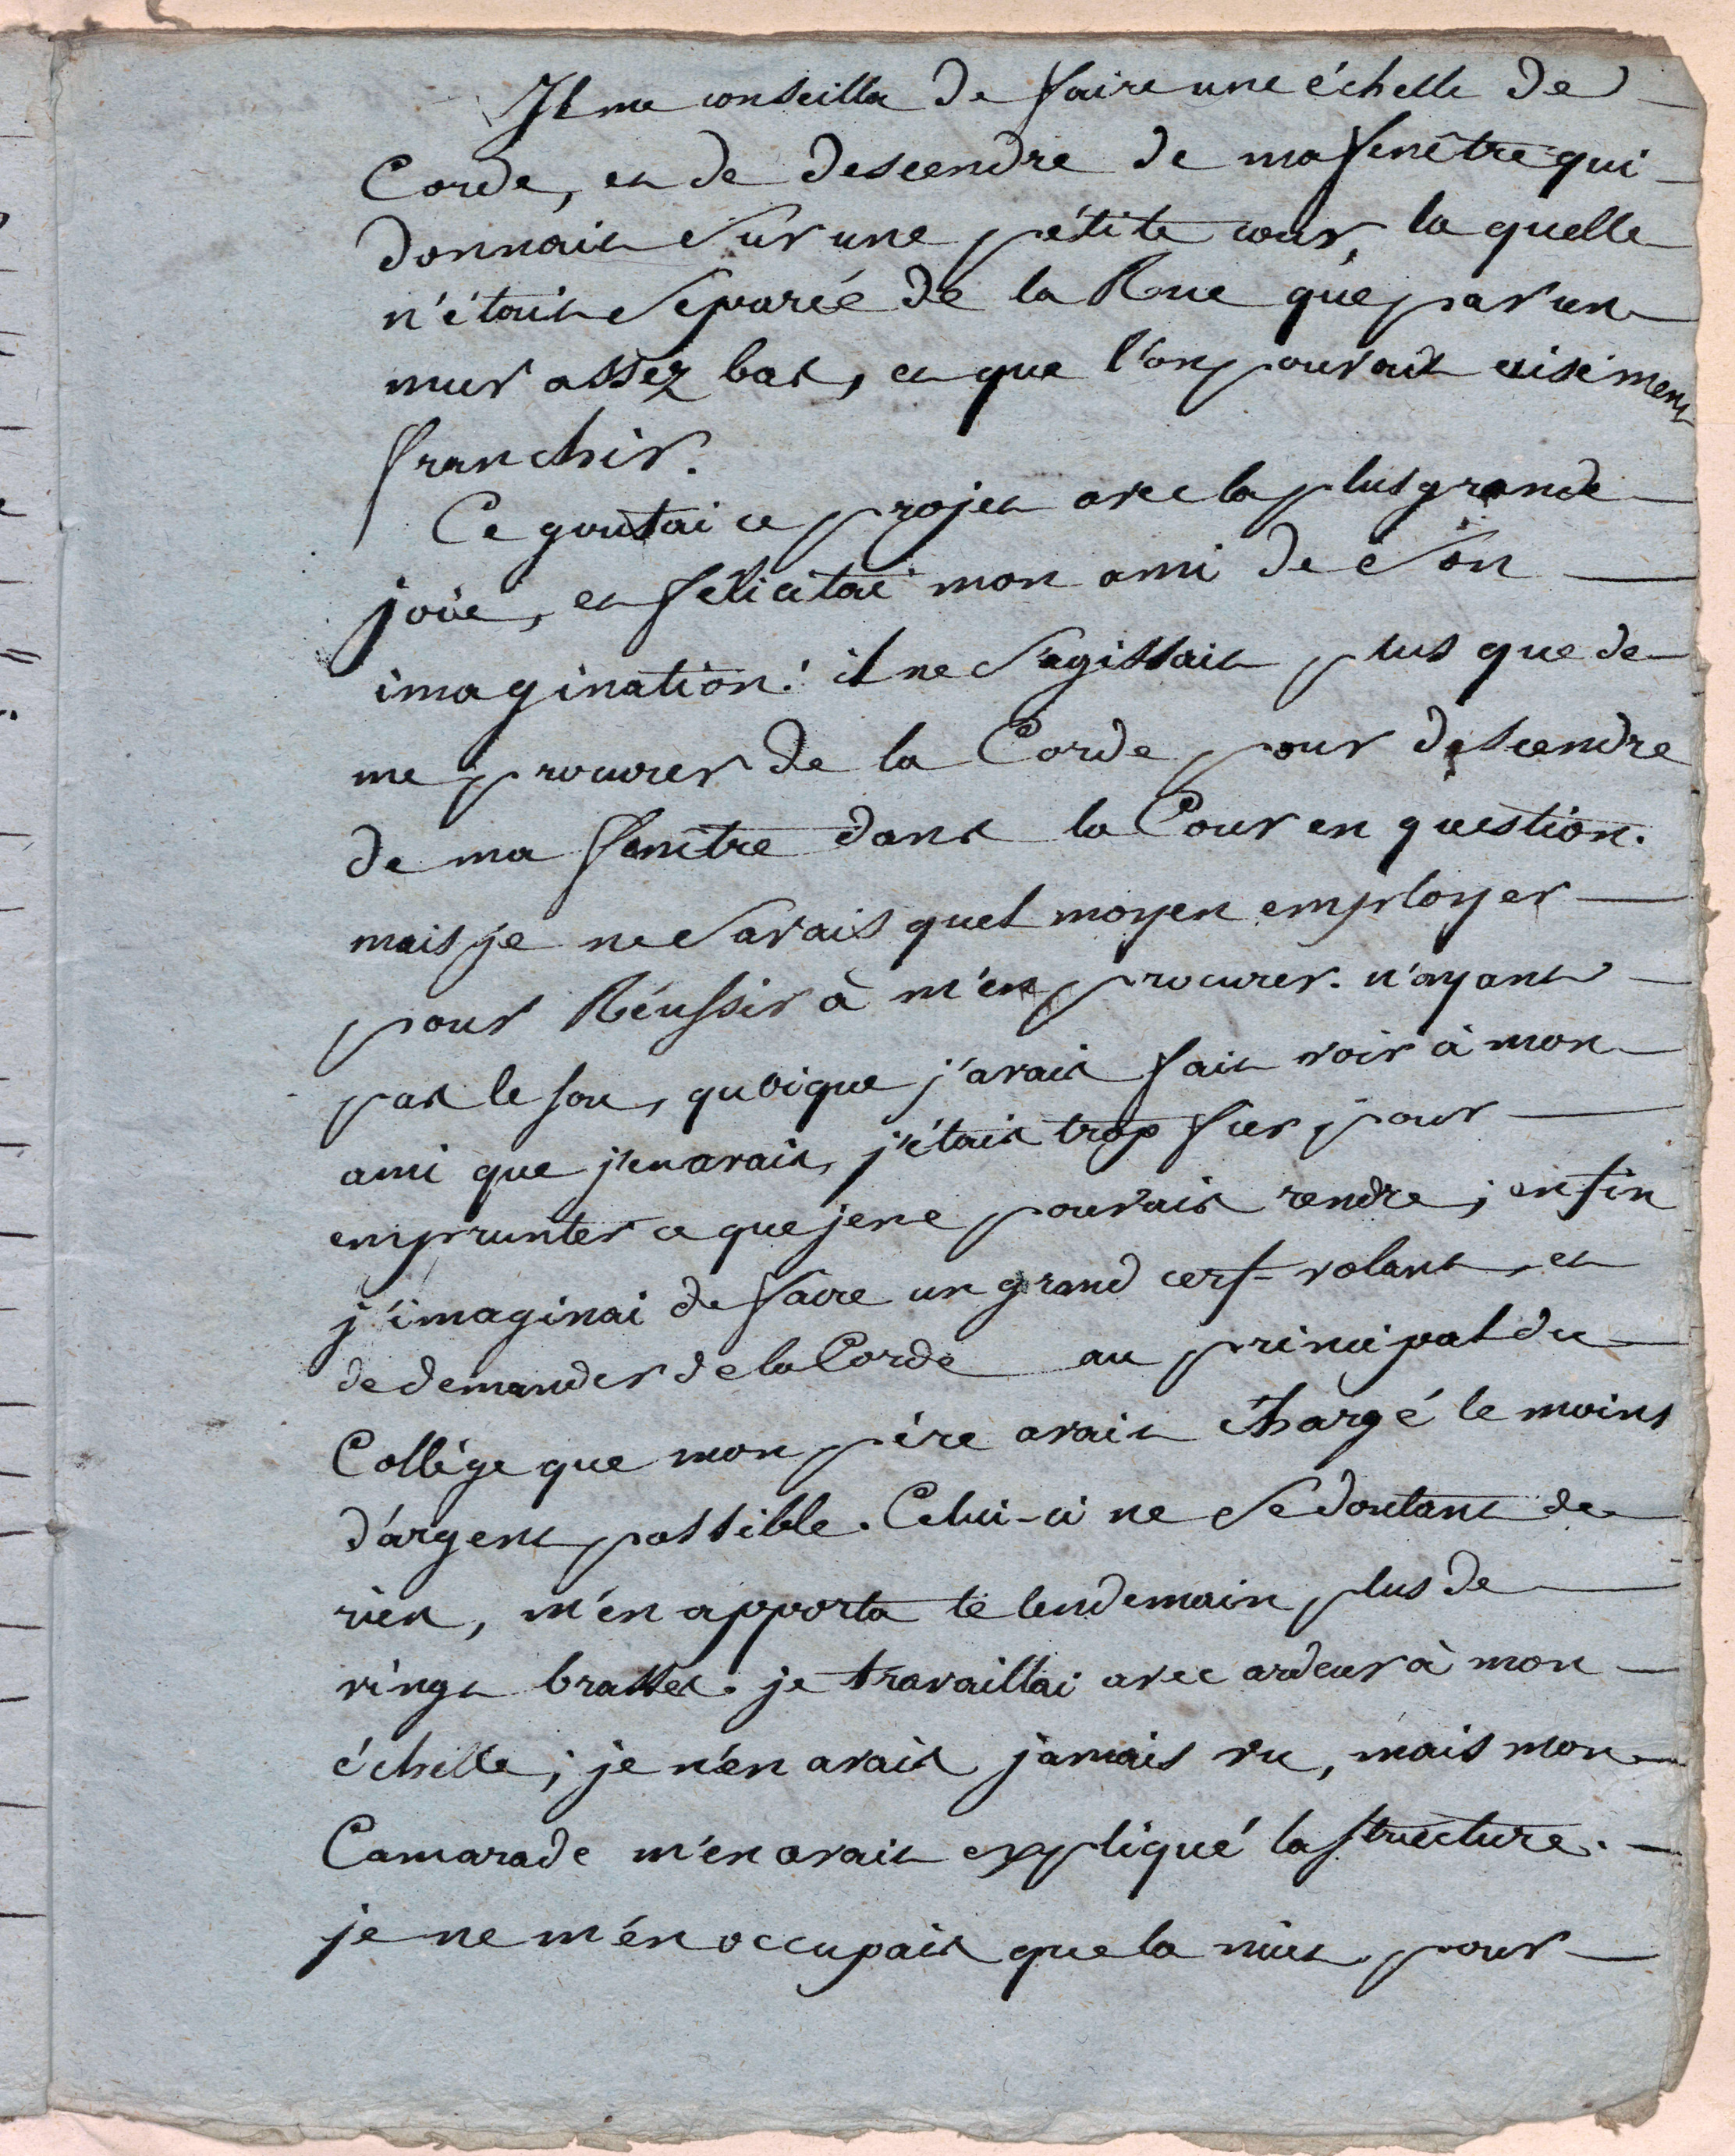 Il me conseilla de faire une échelle de
Corde, et de descendre de ma fenêtre qui
donnait sur une pétite cour, la quelle
n'était separée de la Rue que par un
mur assez bas, et que l'on pouvait aisément
franchir.
Ce goutai ce projet avec la plus grande
joïe, et félicitai mon ami de son
imagination: il ne s'agissait plus que de
me procurer de la Corde pour descendre
de ma fenêtre dans la Cour en question.
mais je ne savais quel moyen employer
pour Réussir à m'en procurer. n'ayant
pas le sou, quoique j'avais fait voir à mon
ami que j'en avais, j'étais trop fier pour
emprunter ce que je ne pouvais rendre; enfin
j'imaginai de faire un grand cerf-volant, et
de demander de la Corde au principal du
Collège que mon père avait chargé le moins
d'argent possible. Celui-ci ne se doutant de
rien, m'en apporta le lendemain plus de
vingt brasses. je travaillai avec ardeur à mon
échelle; je n'en avais jamais vu, mais mon
Camarade m'en avait expliqué la structure.
je ne m'en occupais que la nuit, pour